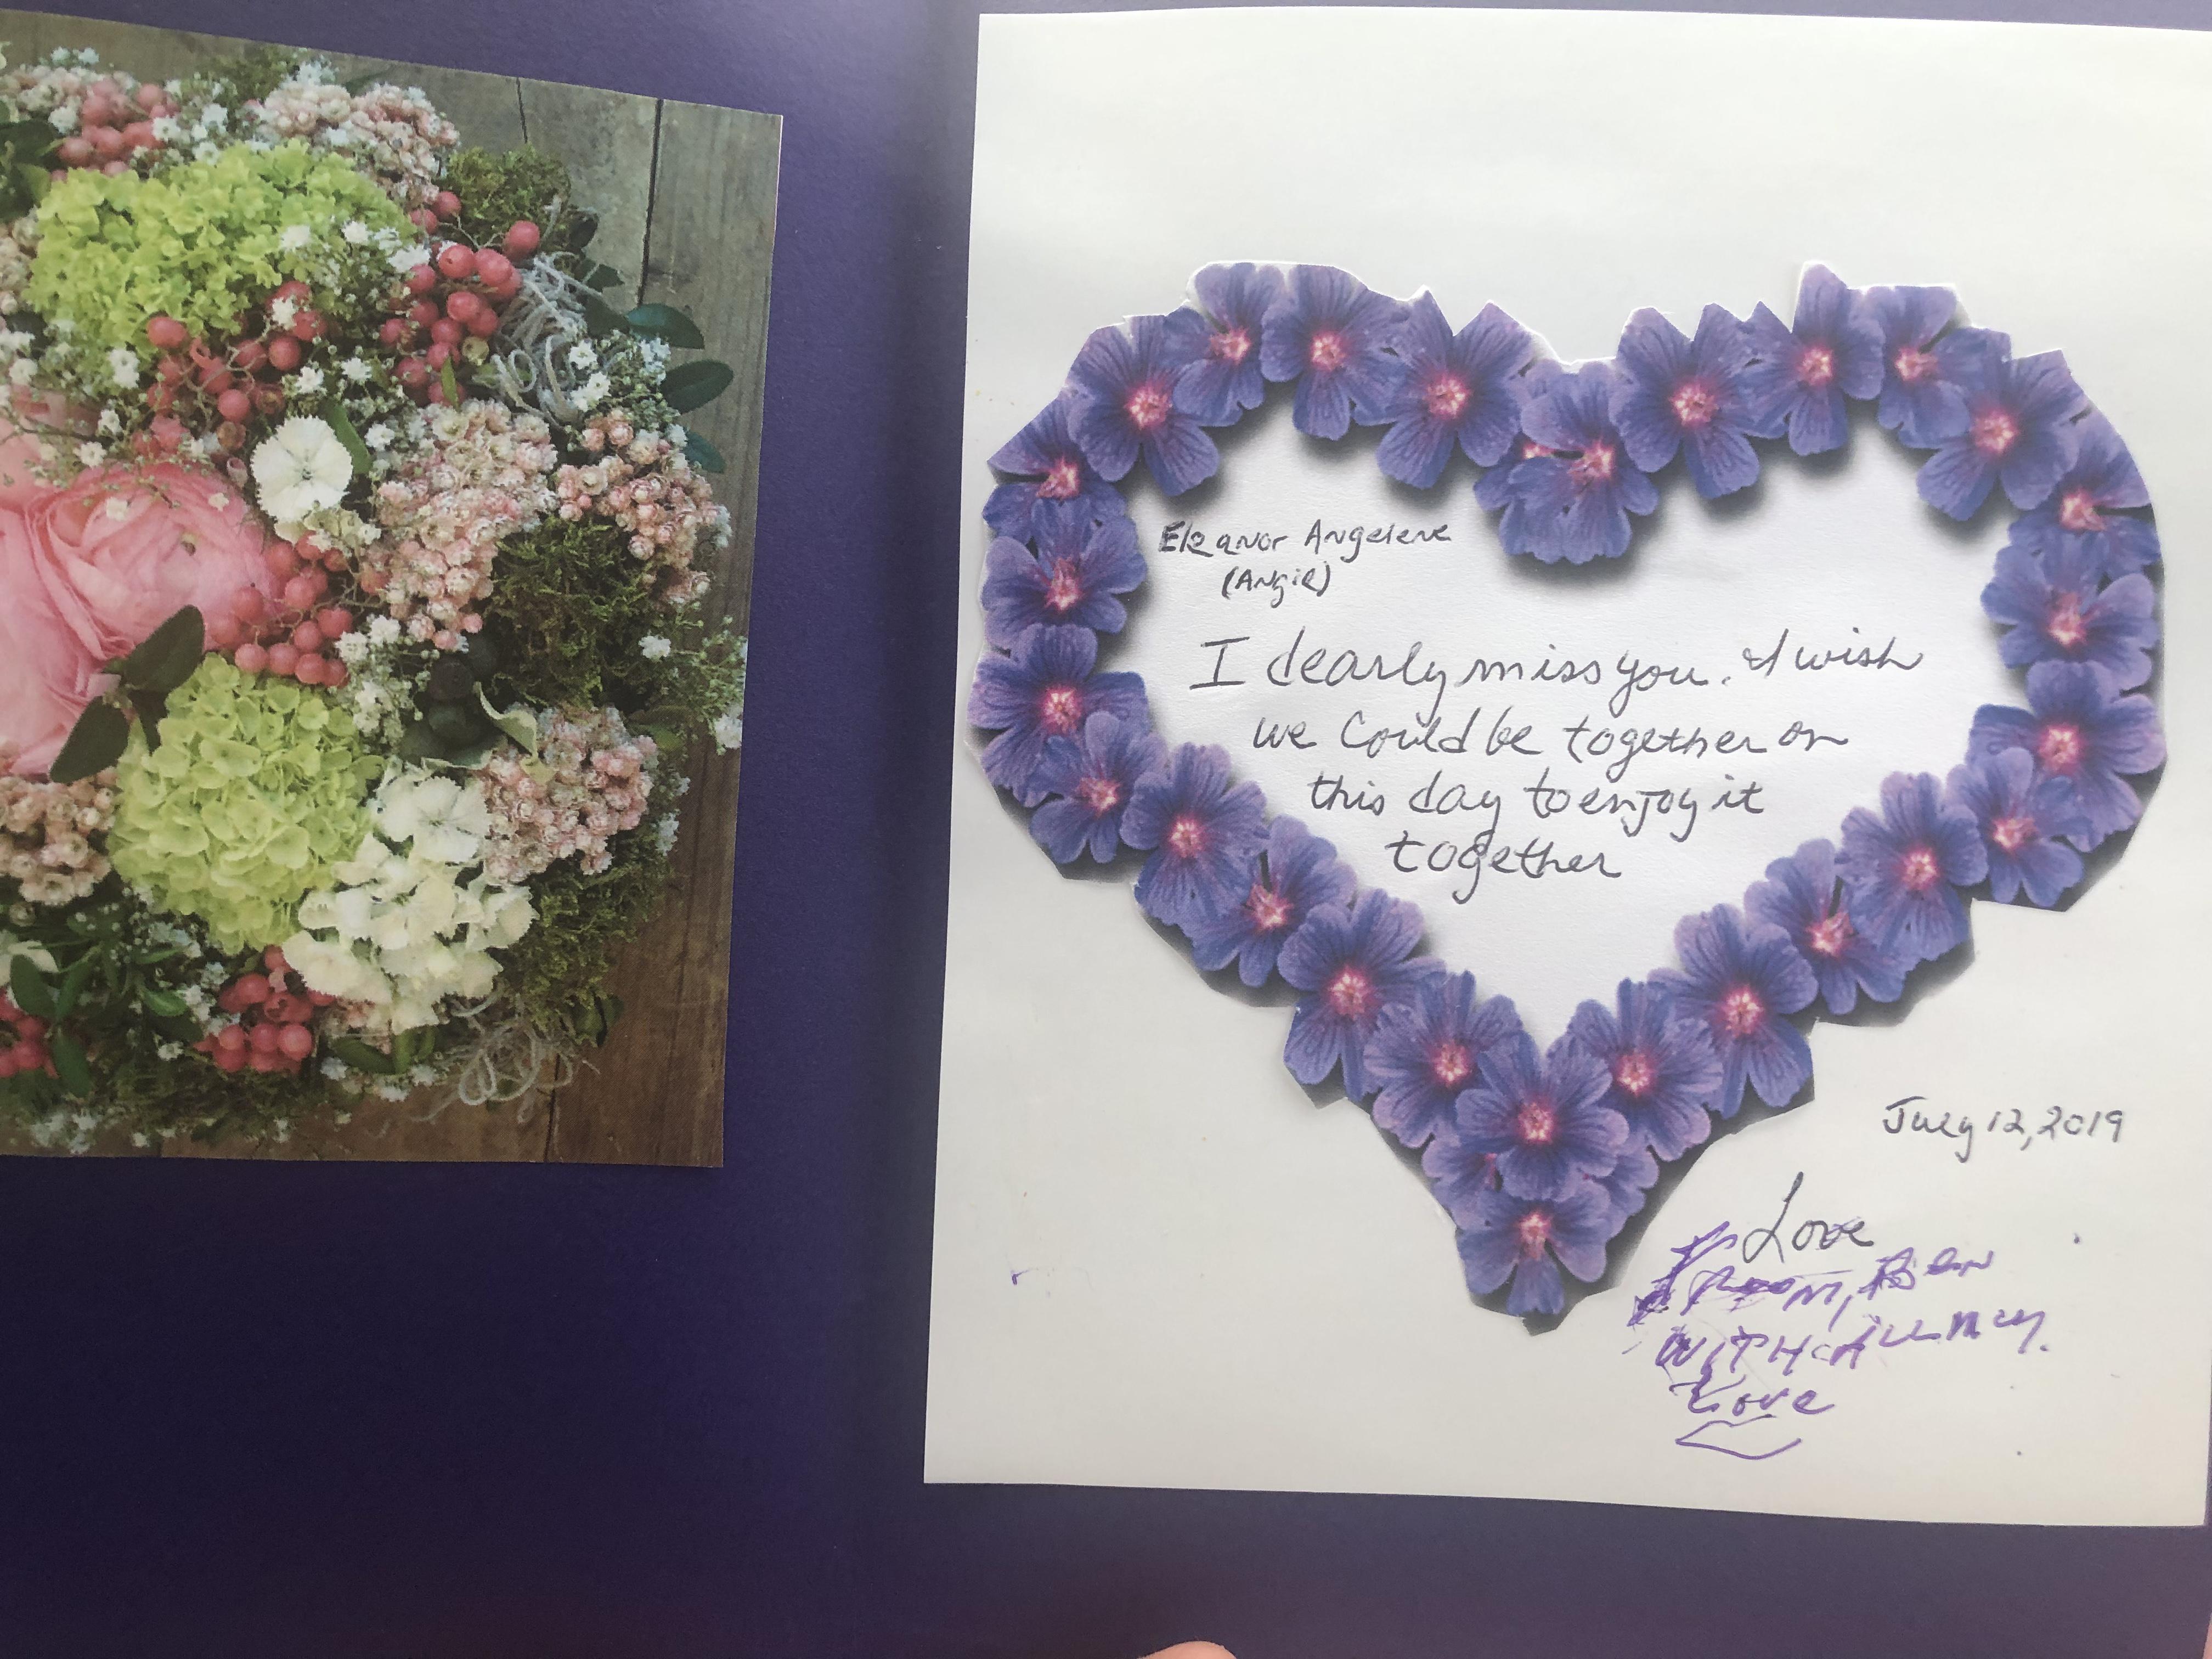 Eleanor Angelene
(Angie)
I dearly miss you. I wish
we could be together on
this day to enjoy it
together
July 12, 2019
Love
From, Ben
WITH ALL MY
Love